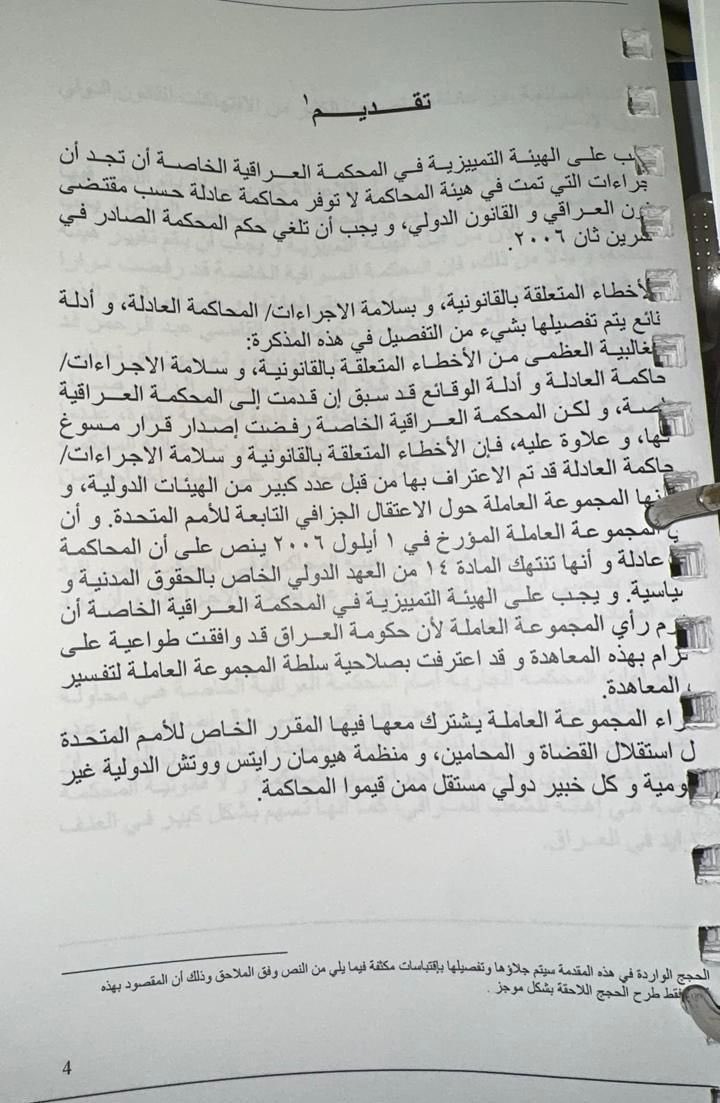 تقديم¹
على الهيئة التمييزية في المحكمة العراقية الخاصة أن تجد أن
التي تمت في هيئة المحاكمة لا توفر محاكمة عادلة حسب مقتضى
العراقي و القانون الدولي، و يجب أن تلغي حكم المحكمة الصادر في
ثان ٢٠٠٦.
المتعلقة بالقانونية، و بسلامة الاجراءات/ المحاكمة العادلة، و أدلة
يتم تفصيلها بشيء من التفصيل في هذه المذكرة:
العظمى من الأخطاء المتعلقة بالقانونية، و سلامة الاجراءات/
العادلة و أدلة الوقائع قد سبق إن قدمت إلى المحكمة العراقية
و لكن المحكمة العراقية الخاصة رفضت إصدار قرار مسوغ
و علاوة عليه، فإن الأخطاء المتعلقة بالقانونية و سلامة الاجراءات/
العادلة قد تم الاعتراف بها من قبل عدد كبير من الهيئات الدولية، و
المجموعة العاملة حول الاعتقال الجزافي التابعة للأمم المتحدة. و أن
المجموعة العاملة المؤرخ في ١ أيلول ٢٠٠٦ ينص على أن المحاكمة
عادلة و أنها تنتهك المادة ١٤ من العهد الدولي الخاص بالحقوق المدنية و
و يجب على الهيئة التمييزية في المحكمة العراقية الخاصة أن
رأي المجموعة العاملة لأن حكومة العراق قد وافقت طواعية على
بهذه المعاهدة و قد اعترفت بصلاحية سلطة المجموعة العاملة لتفسير
المعاهدة.
المجموعة العاملة يشترك معها فيها المقرر الخاص للأمم المتحدة
استقلال القضاة و المحامين، و منظمة هيومان رايتس ووتش الدولية غير
و كل خبير دولي مستقل ممن قيموا المحاكمة.
الحجج الواردة في هذه المقدمة سيتم جلاؤها وتفصيلها بإقتباسات مكثفة فيما يلي من النص وفق الملاحق وذلك أن المقصود بهذه
فقط طرح الحجج اللاحقة بشكل موجز .
4